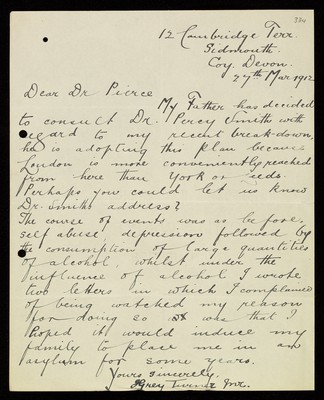 334
12 Cambridge Terr.
Sidmouth.
Coy. Devon.
27th Mar. 1912
Dear Dr Pierce
My Father has decided
to consult Dr. Percy Smith with
regard to my recent break-down,
he is adopting this plan because
London is more conveniently reached
from here than York or Leeds.
Perhaps you could let us know
Dr. Smiths address?
The course of events was as before,
self abuse, depression followed by
the consumption of large quantities
of alcohol, whilst under the
influence of alcohol I wrote
two letters in which I complained
of being watched my reason
for doing so was that I
hoped it would induce my
family to place me in an
asylum for some years.
Yours sincerely.
Grey Turner Jnr.